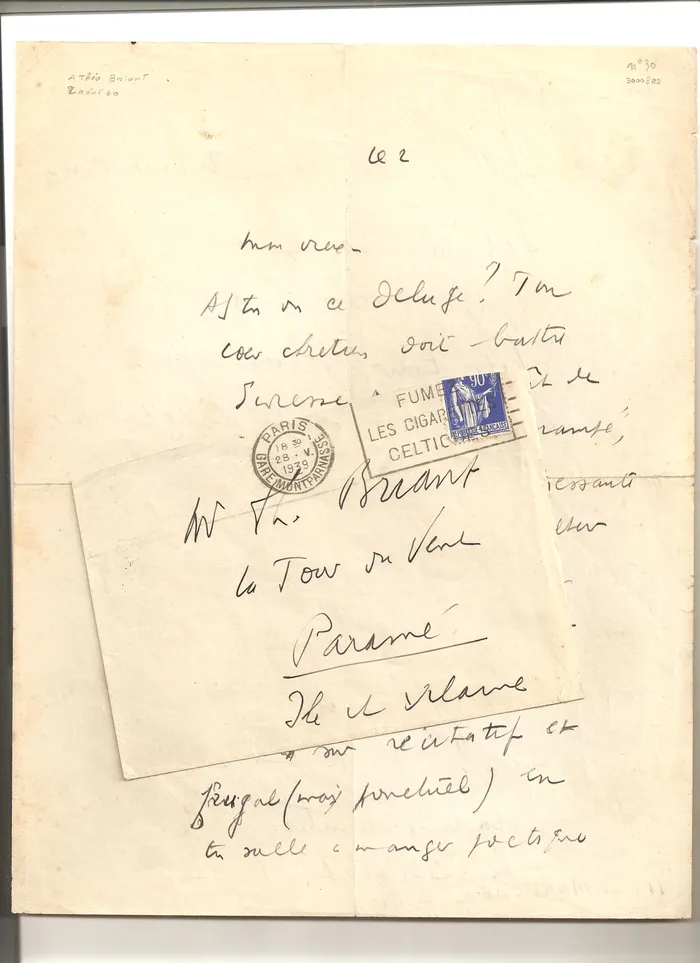 A Théo Briant
2 août 40
n° 30
Le 2
Mon vieux -
As tu vu ce Déluge ? Ton
coeur chrétien doit battre
d'ivresse
ût de
rampé,
ressante
FUME
LES CIGARETTES
CELTIQUES
90
RÉPUBLIQUE FRANÇAISE
PARIS
18 30
28 · V.
1939
GARE MONTPARNASSE
Mr Th. Briant
la Tour du Vent
Paramé
Ile et Vilaine
récitatif et
frugal (mais ponctuel) en
ta salle à manger poétique